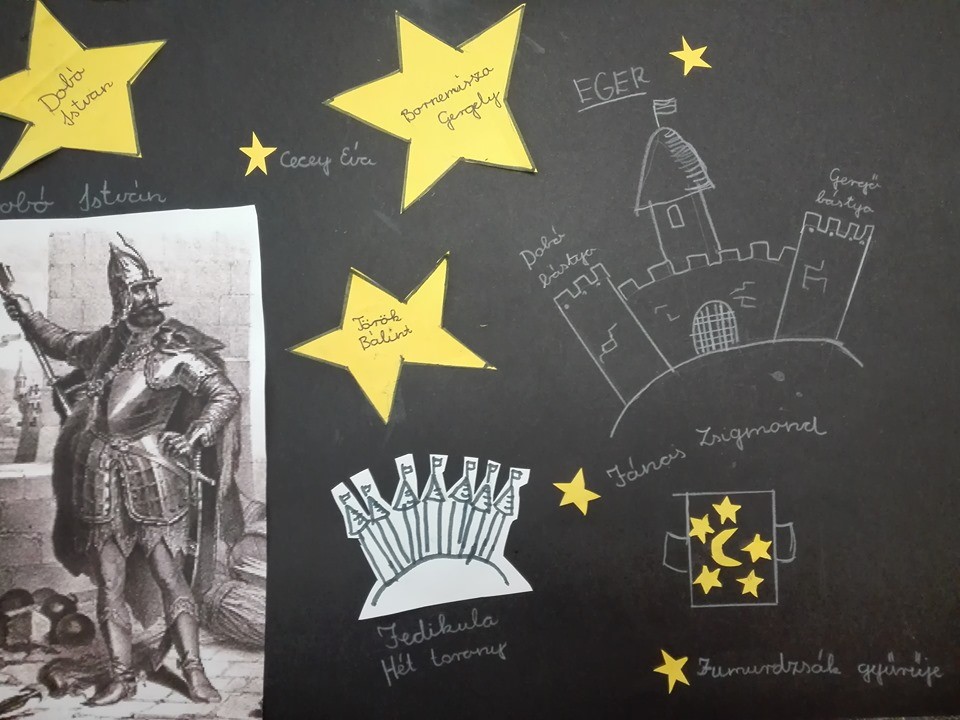 Dobó
István
Bornemissza
Gergely
EGER
Cecey Éva
obó István
Gergő
bástya
Dobó
bástya
Török
Bálint
János Zsigmond
Jedikula
Hét torony
Jumurdzsák gyűrűje